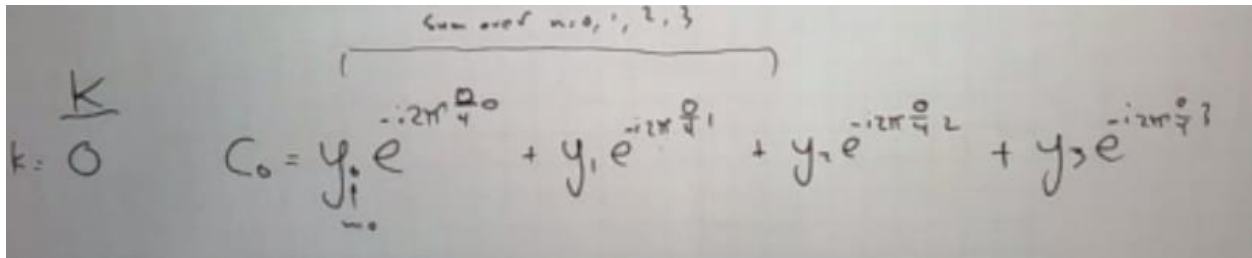 sum over n=0, 1, 2, 3
K
k = 0 C₀ = y₀ e^{-i2π \frac{0}{4} 0} + y₁ e^{-i2π \frac{0}{4} 1} + y₂ e^{-i2π \frac{0}{4} 2} + y₃ e^{-i2π \frac{0}{4} 3}